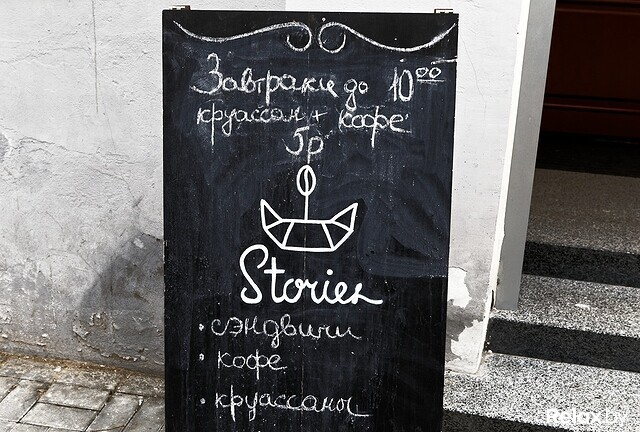 Завтраки до 10⁰⁰
круассан + кофе
5р
Stories
• сэндвичи
• кофе
• круассаны
Relax.by